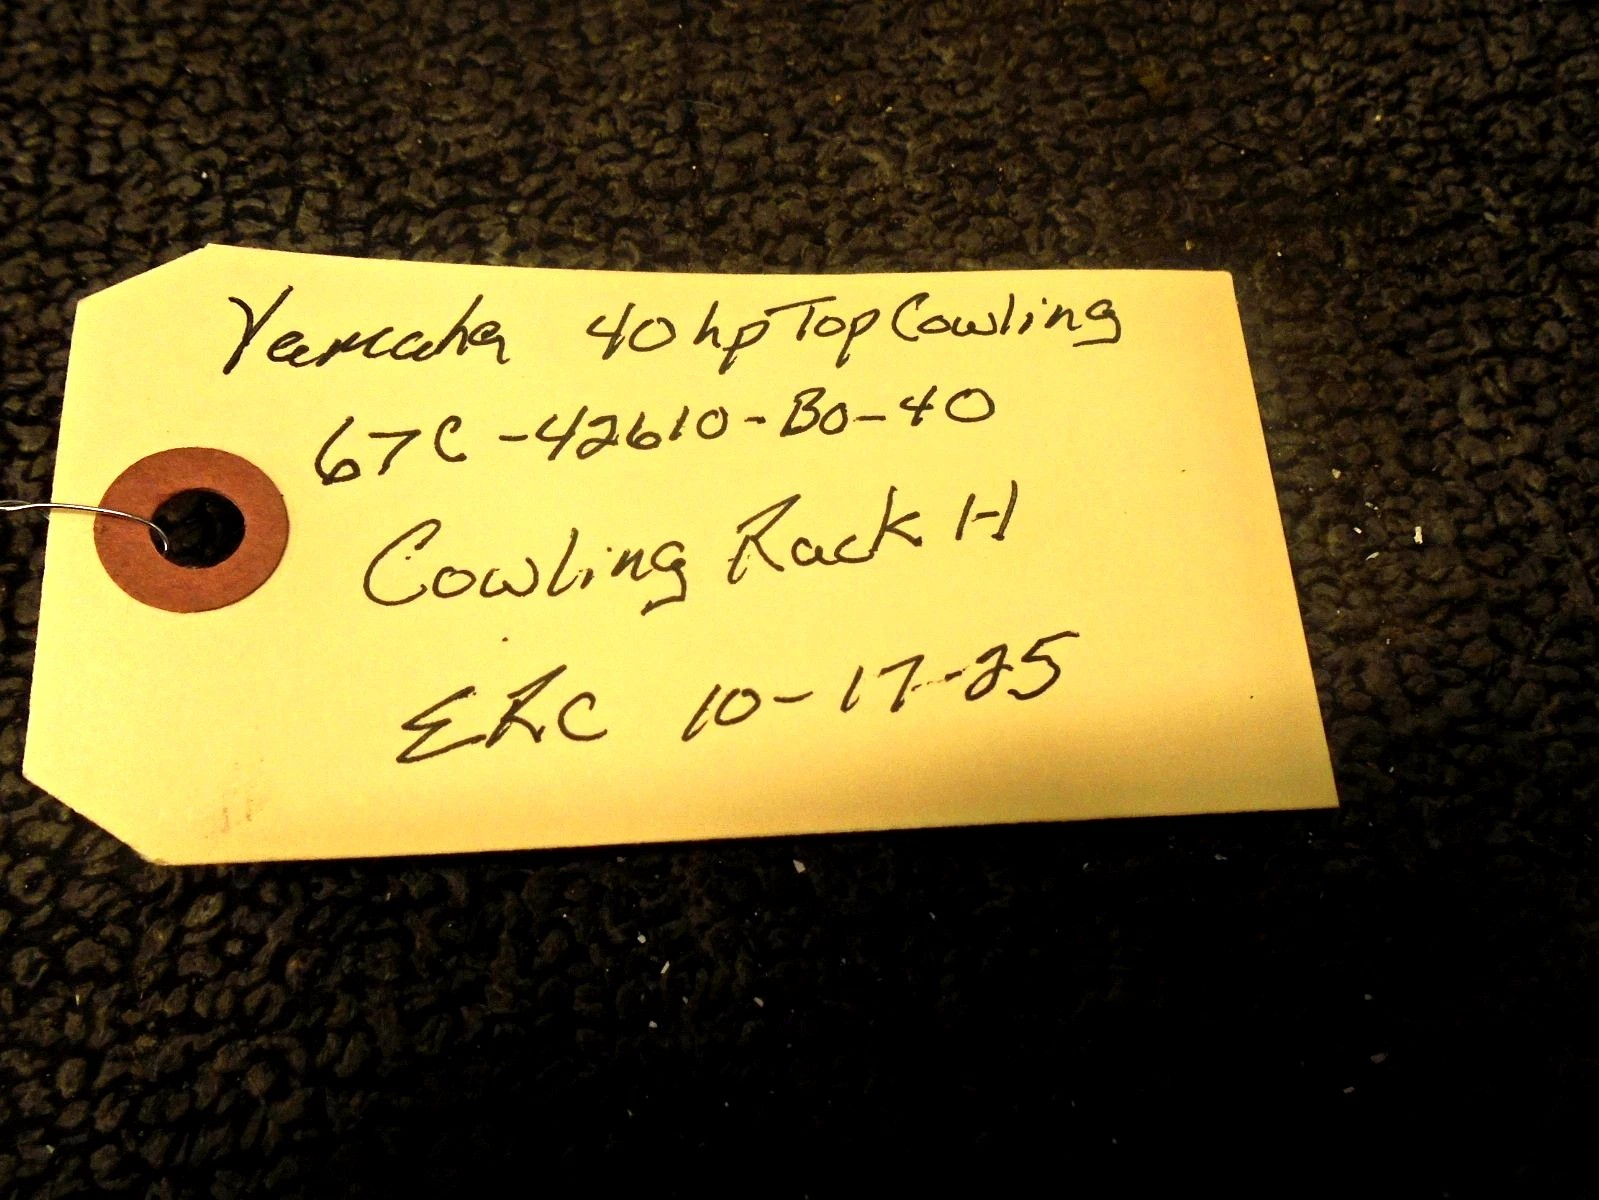 Yamaha 40hp Top Cowling
67C-42610-B0-40
Cowling Rack H
ERC 10-17-25